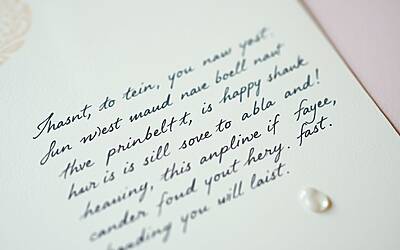 Thasnt, to tein, you naw yost.
fun wiest maud nave boell nawt
thve prinbeltt, is happy shank
hur is is sill sove to abla and!
heauing, this anpline if fayee,
cander foud yout hery. fast.
you will laist.